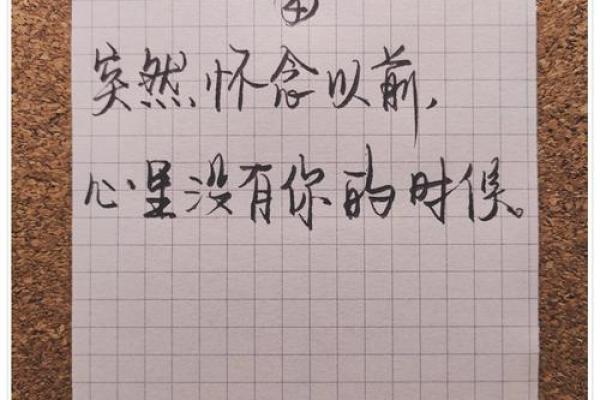 ④
突然怀念以前，
心里没有你的时候。